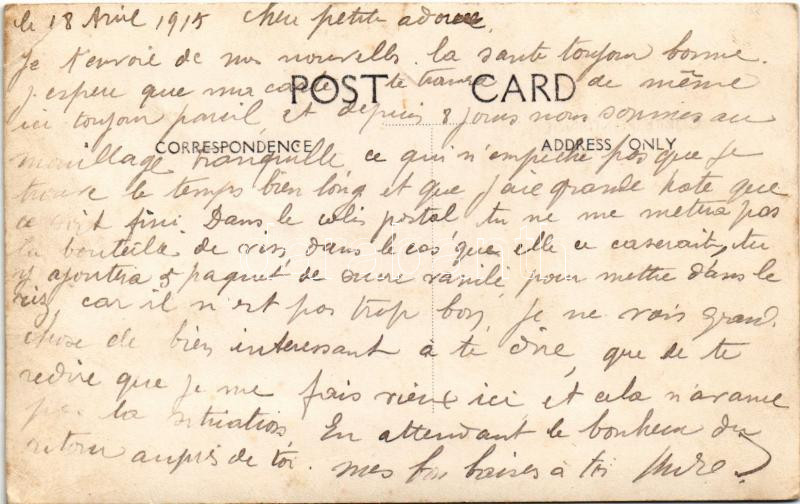 le 18 Avril 1915 Cher petite adorée,
Je t'envoie de mes nouvelles. la santé toujour bonne.
J'espere que ma carte te trouve de même
POST CARD
ici toujour pareil, et depuis 8 jours nous sommes au
CORRESPONDENCE ADDRESS ONLY
mouillage tranquille ce qui n'empêche pas que je
trouve le temps bien long et que j'aie grande hate que
ce soit fini. Dans le colis postal tu ne me mettra pas
la bouteille de vin, dans le cas que elle ce caserait, tu
y ajoutra 5 paquet de sucre vanile pour mettre dans le
riz, car il n'est pas trop bon, je ne vois grand
chose de bien interessant à te dire, que de te
redire que je me fais vieux ici et cela n'avance
pas la situation. En attendant le bonheur du
retour auprès de toi. mes bon baises à toi